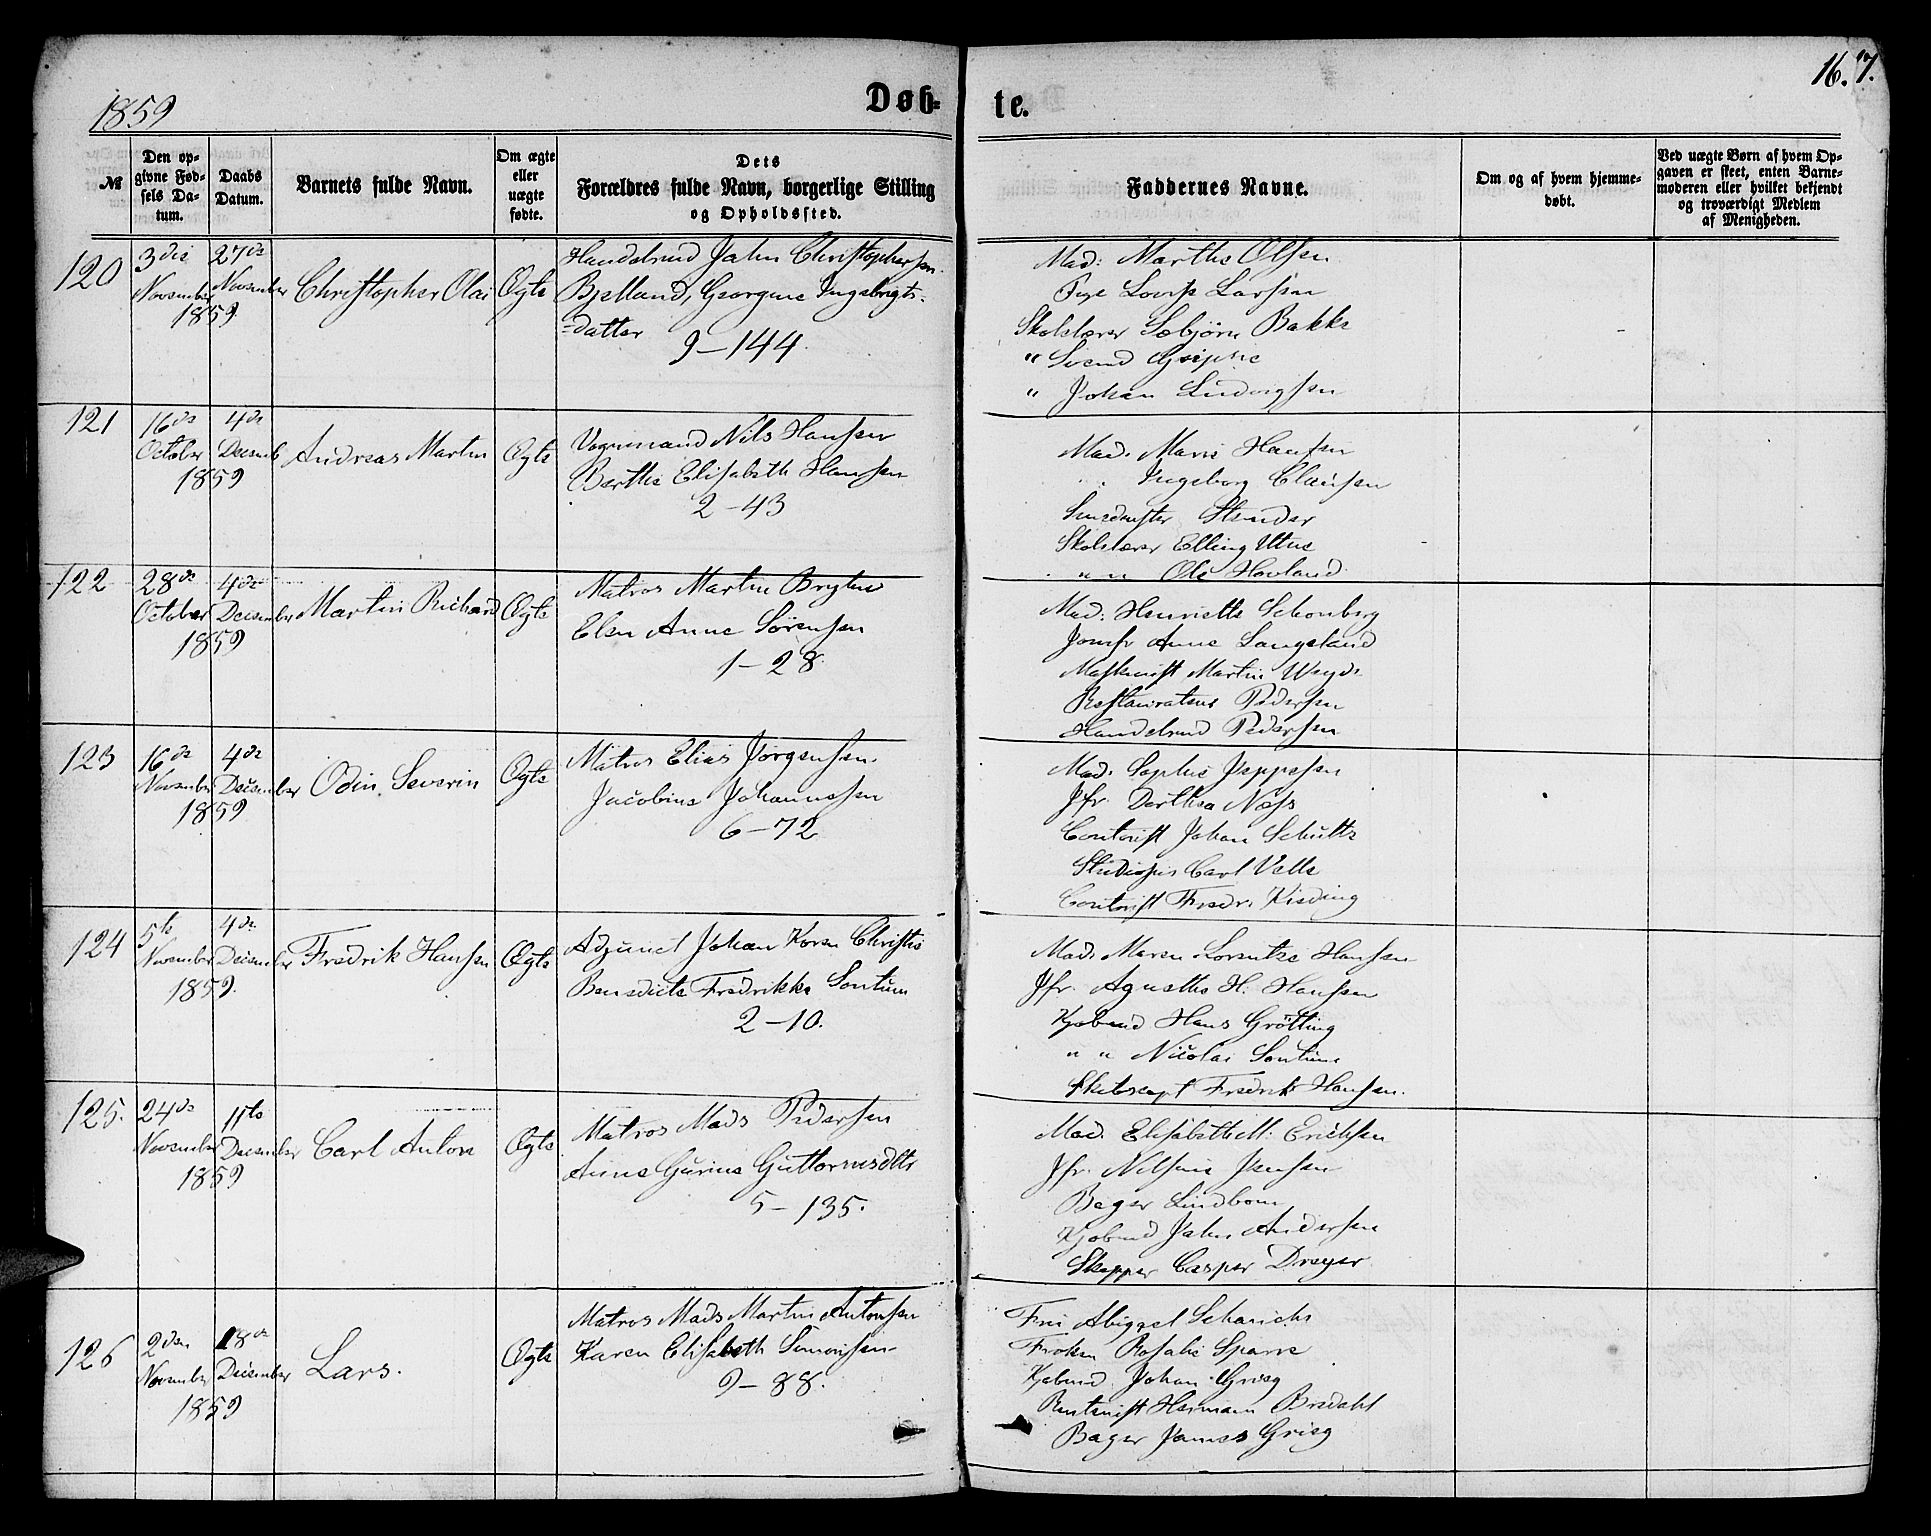 1859
Døb-
te.
16. 7.
№
Den opgivne Fødsels Datum.
Daabs Datum.
Barnets fulde Navn.
Om ægte eller uægte fødte.
Dets
Forældres fulde Navn, borgerlige Stilling
og Opholdssted.
Faddernes Navne.
Om og af hvem hjemmedøbt.
Ved uægte Børn af hvem Opgaven er skeet, enten Barnemoderen eller hvilket bekjendt og troværdigt Medlem af Menigheden.
120
3die November 1859
27de November
Christopher Olai
Ægte
Handelsmd John Christophersen
Bjelland, Georgine Ingebrigts-
datter
9-144.
Mad: Marthe Olsen
Pige Lovise Larsen
Skolelærer Sæbjørn Bakke
" Svend
" Johan Ludvigsen
121
16de October 1859
4de Decemb
Andreas Martin
Ægte
Vognmand Nils Hansen
Berthe Elisabeth Hansen
2-43
Mad. Marie Hansen
" Ingeborg Clausen
Smedmster Stender
Skolelærer Elling Utne
" " Ole Hovland
122
28de October 1859
4de December
Martin Richard
Ægte
Matros Martin
Elen Anne Sørensen
1-28
Mad: Henriette Schonberg
Jomfr Anne Langeland
Maskinist Martin
Restaurateur Pedersen
Handelsmd Pedersen
123
16de November 1859
4de December
Odin Severin
Ægte
Matros Elias Jørgensen
Jacobine Johannessen
6-72
Mad. Sophie Jeppesen
Jfr. Dorthea Næss
Contorist Johan Schultz
Studiosus Carl
Contorist Fredr.
124
5te November 1859.
4de December
Fredrik Hansen
Ægte
Adjunct Johan Koren Christie
Benedicte Fredrikke Sontum
2-10.
Mad. Maren Lorentze Hansen
Jfr. Agnethe H. Hansen
Kjøbmd Hans Grøtting
" " Nicolai Sontum
Skibscapt Fredrik Hansen.
125.
24de November 1859
11te December
Carl Anton
Ægte
Matros Mads Pedersen
Anne Gurine Guttormsdtr
5-135.
Mad. Elisabeth M. Erichsen
Jfr. Nilsine Jensen
Bager Lindbom
Kjøbmd John Andersen
Skipper Casper Dreyer
126
2den November 1859
18de December
Lars.
Ægte
Matros Mads Martin Antonsen
Karen Elisabeth Simonsen
9-88.
Fru Abigael
Frøken Rosalie Sparre
Kjøbmd Johan Grieg
Rentenist Hermann Bredahl
Bager James Grieg